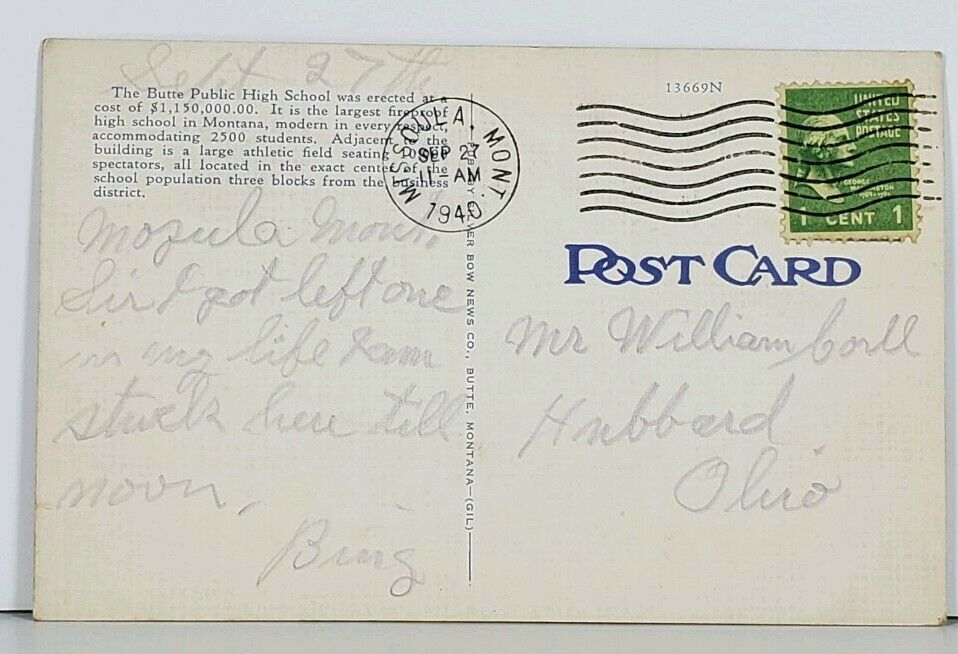 Sept 27th
The Butte Public High School was erected at a
cost of $1,150,000.00. It is the largest fireproof
high school in Montana, modern in every respect,
accommodating 2500 students. Adjacent to the
building is a large athletic field seating 10,000
spectators, all located in the exact center of the
school population three blocks from the business
district.
Mozula Mont,
Sir I got left one
in my life I am
stuck here till
noon,
Bing
MISSOULA, MONT.
SEP 27
11-AM
1940
PUB. BY BOW NEWS CO., BUTTE, MONTANA—(GIL)
13669N
UNITED
STATES
POSTAGE
GEORGE
WASHINGTON
1 CENT 1
POST CARD
Mr William Corll
Hubbard
Ohio